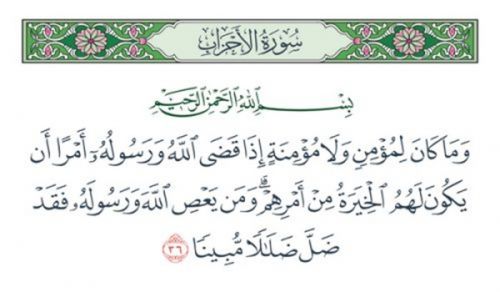 سُورَةُ الأَحْزَابِ
بِسْمِ اللَّهِ الرَّحْمَٰنِ الرَّحِيمِ
وَمَا كَانَ لِمُؤْمِنٍ وَلَا مُؤْمِنَةٍ إِذَا قَضَى ٱللَّهُ وَرَسُولُهُۥٓ أَمْرًا أَن
يَكُونَ لَهُمُ ٱلْخِيَرَةُ مِنْ أَمْرِهِمْۗ وَمَن يَعْصِ ٱللَّهَ وَرَسُولَهُۥ فَقَدْ
ضَلَّ ضَلَٰلًا مُّبِينًا ٣٦